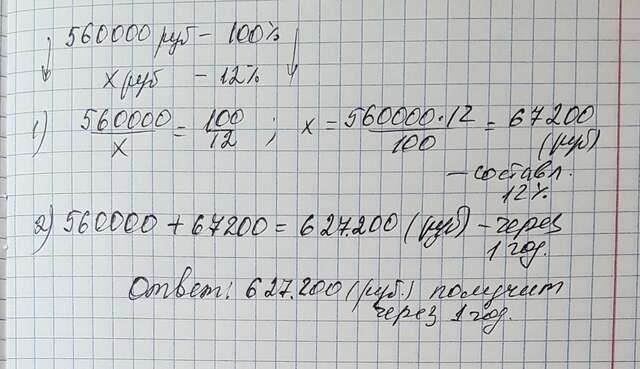 560000 руб – 100%
x руб – 12%
1) 560000/x = 100/12 ; x = 560000·12/100 = 67200 (руб)
– составл. 12%.
2) 560000 + 67200 = 627.200 (руб) – через 1 год.
Ответ: 627.200 (руб.) получит
через 1 год.